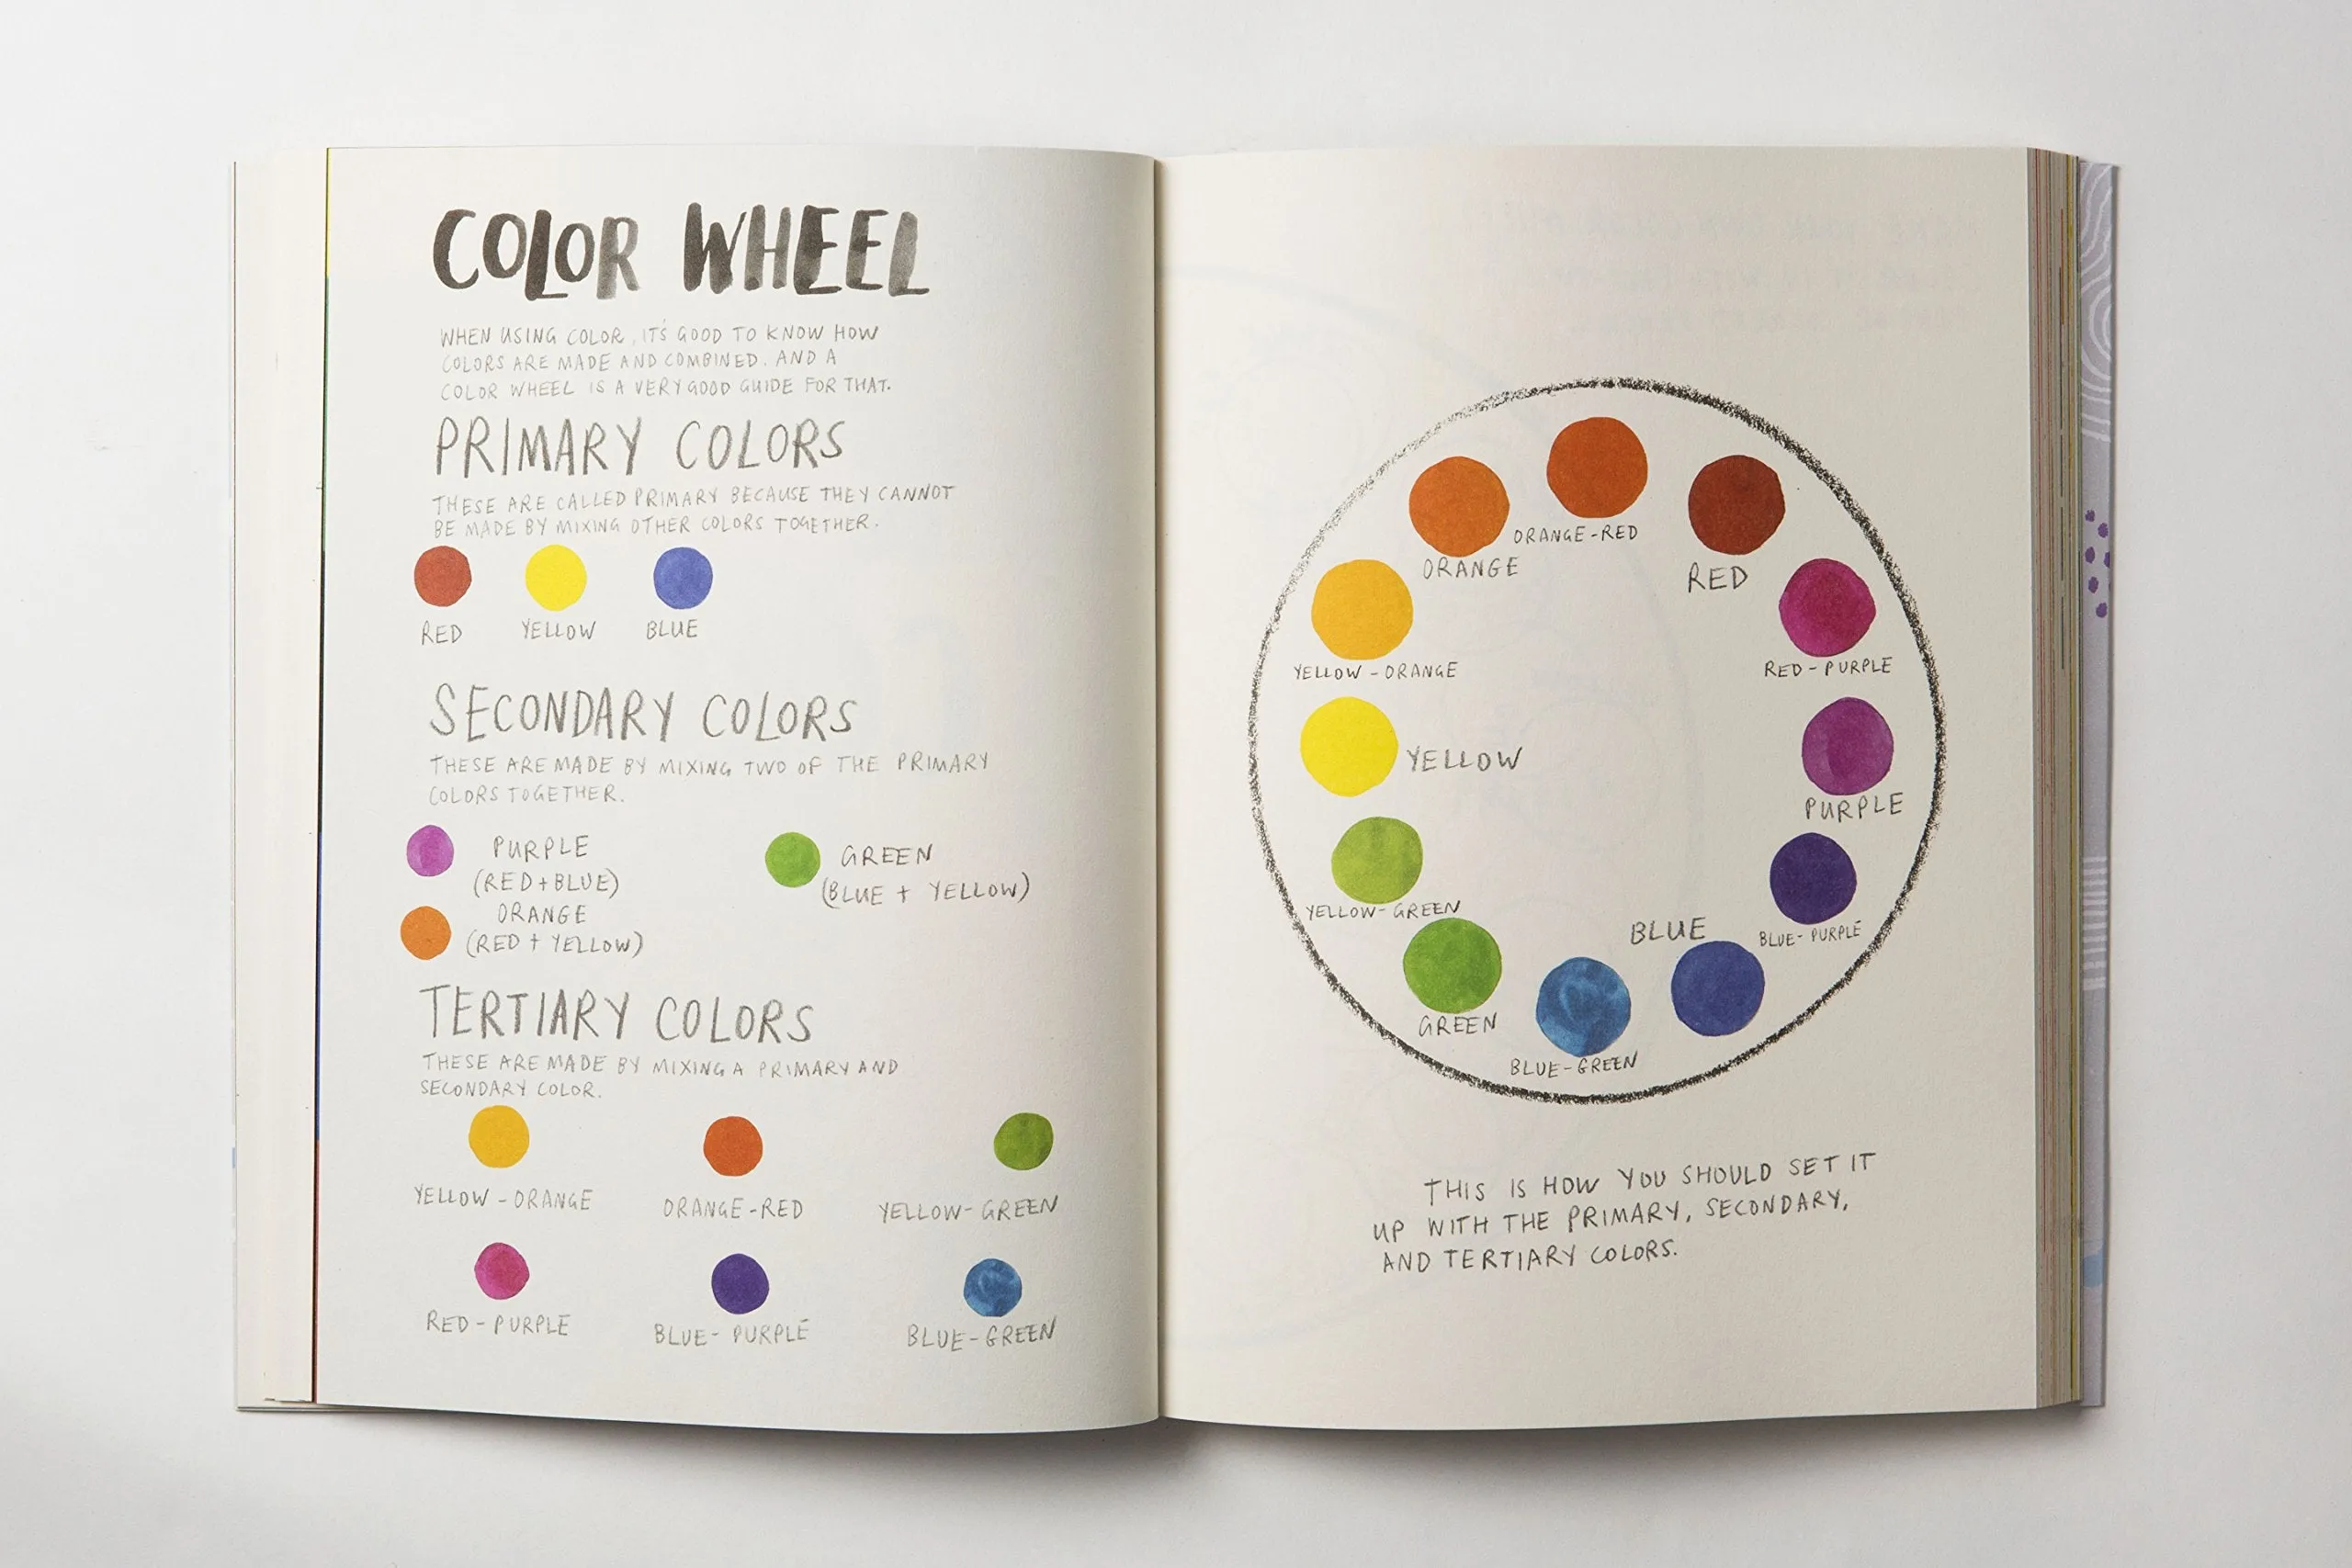 COLOR WHEEL
WHEN USING COLOR, IT'S GOOD TO KNOW HOW
COLORS ARE MADE AND COMBINED. AND A
COLOR WHEEL IS A VERY GOOD GUIDE FOR THAT.
PRIMARY COLORS
THESE ARE CALLED PRIMARY BECAUSE THEY CANNOT
BE MADE BY MIXING OTHER COLORS TOGETHER.
RED YELLOW BLUE
SECONDARY COLORS
THESE ARE MADE BY MIXING TWO OF THE PRIMARY
COLORS TOGETHER.
PURPLE
(RED+BLUE)
ORANGE
(RED + YELLOW)
GREEN
(BLUE + YELLOW)
TERTIARY COLORS
THESE ARE MADE BY MIXING A PRIMARY AND
SECONDARY COLOR.
YELLOW-ORANGE ORANGE-RED YELLOW-GREEN
RED-PURPLE BLUE-PURPLE BLUE-GREEN
ORANGE-RED
ORANGE
RED
YELLOW-ORANGE
RED-PURPLE
YELLOW
PURPLE
YELLOW-GREEN
BLUE
BLUE-PURPLE
GREEN
BLUE-GREEN
THIS IS HOW YOU SHOULD SET IT
UP WITH THE PRIMARY, SECONDARY,
AND TERTIARY COLORS.